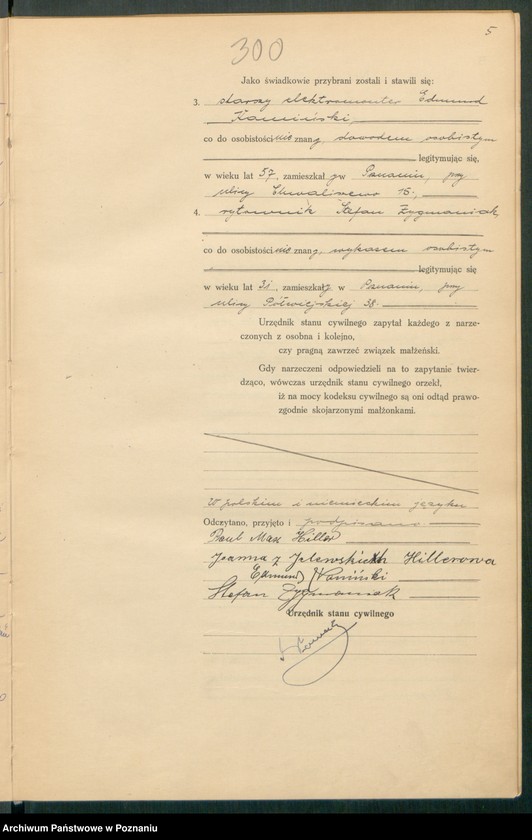 5
300
Jako świadkowie przybrani zostali i stawili się:
3. starszy elektromonter Edmund
Kamiński
co do osobistości nie znany, dowodem osobistym
legitymując się,
w wieku lat 57, zamieszkały w Poznaniu, przy
ulicy Chwaliszewo 16,
4. rytownik Stefan Zygmaniak,
co do osobistości nie znany, wykazem osobistym
legitymując się
w wieku lat 31, zamieszkały w Poznaniu, przy
ulicy Półwiejskiej 38.
Urzędnik stanu cywilnego zapytał każdego z narze-
czonych z osobna i kolejno,
czy pragną zawrzeć związek małżeński.
Gdy narzeczeni odpowiedzieli na to zapytanie twier-
dząco, wówczas urzędnik stanu cywilnego orzekł,
iż na mocy kodeksu cywilnego są oni odtąd prawo-
zgodnie skojarzonymi małżonkami.
W polskim i niemieckim języku
Odczytano, przyjęto i podpisano
Paul Max Hiller
Joanna z Hillerowa
Edmund Kamiński
Stefan Zygmaniak
Urzędnik stanu cywilnego
Archiwum Państwowe w Poznaniu